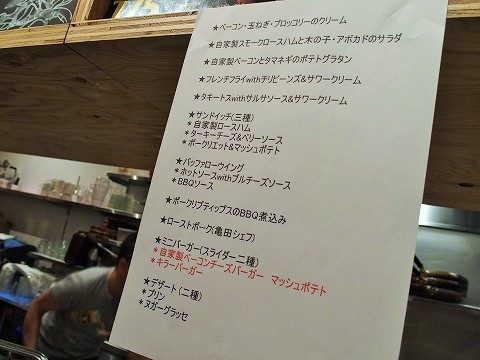 ★ベーコン・玉ねぎ・ブロッコリーのクリーム
★自家製スモークロースハムと木の子・アボカドのサラダ
★自家製ベーコンとタマネギのポテトグラタン
★フレンチフライwithチリビーンズ&サワークリーム
★タキートスwithサルサソース&サワークリーム
★サンドイッチ(三種)
＊自家製ロースハム
＊ターキーチーズ&ベリーソース
＊ポークリエット&マッシュポテト
★バッファローウイング
＊ホットソースwithブルチーズソース
＊BBQソース
★ポークリブティップスのBBQ煮込み
★ローストポーク(亀田シェフ)
★ミニバーガー(スライダー二種)
＊自家製ベーコンチーズバーガー マッシュポテト
＊キラーバーガー
★デザート(二種)
＊プリン
＊ヌガーグラッセ